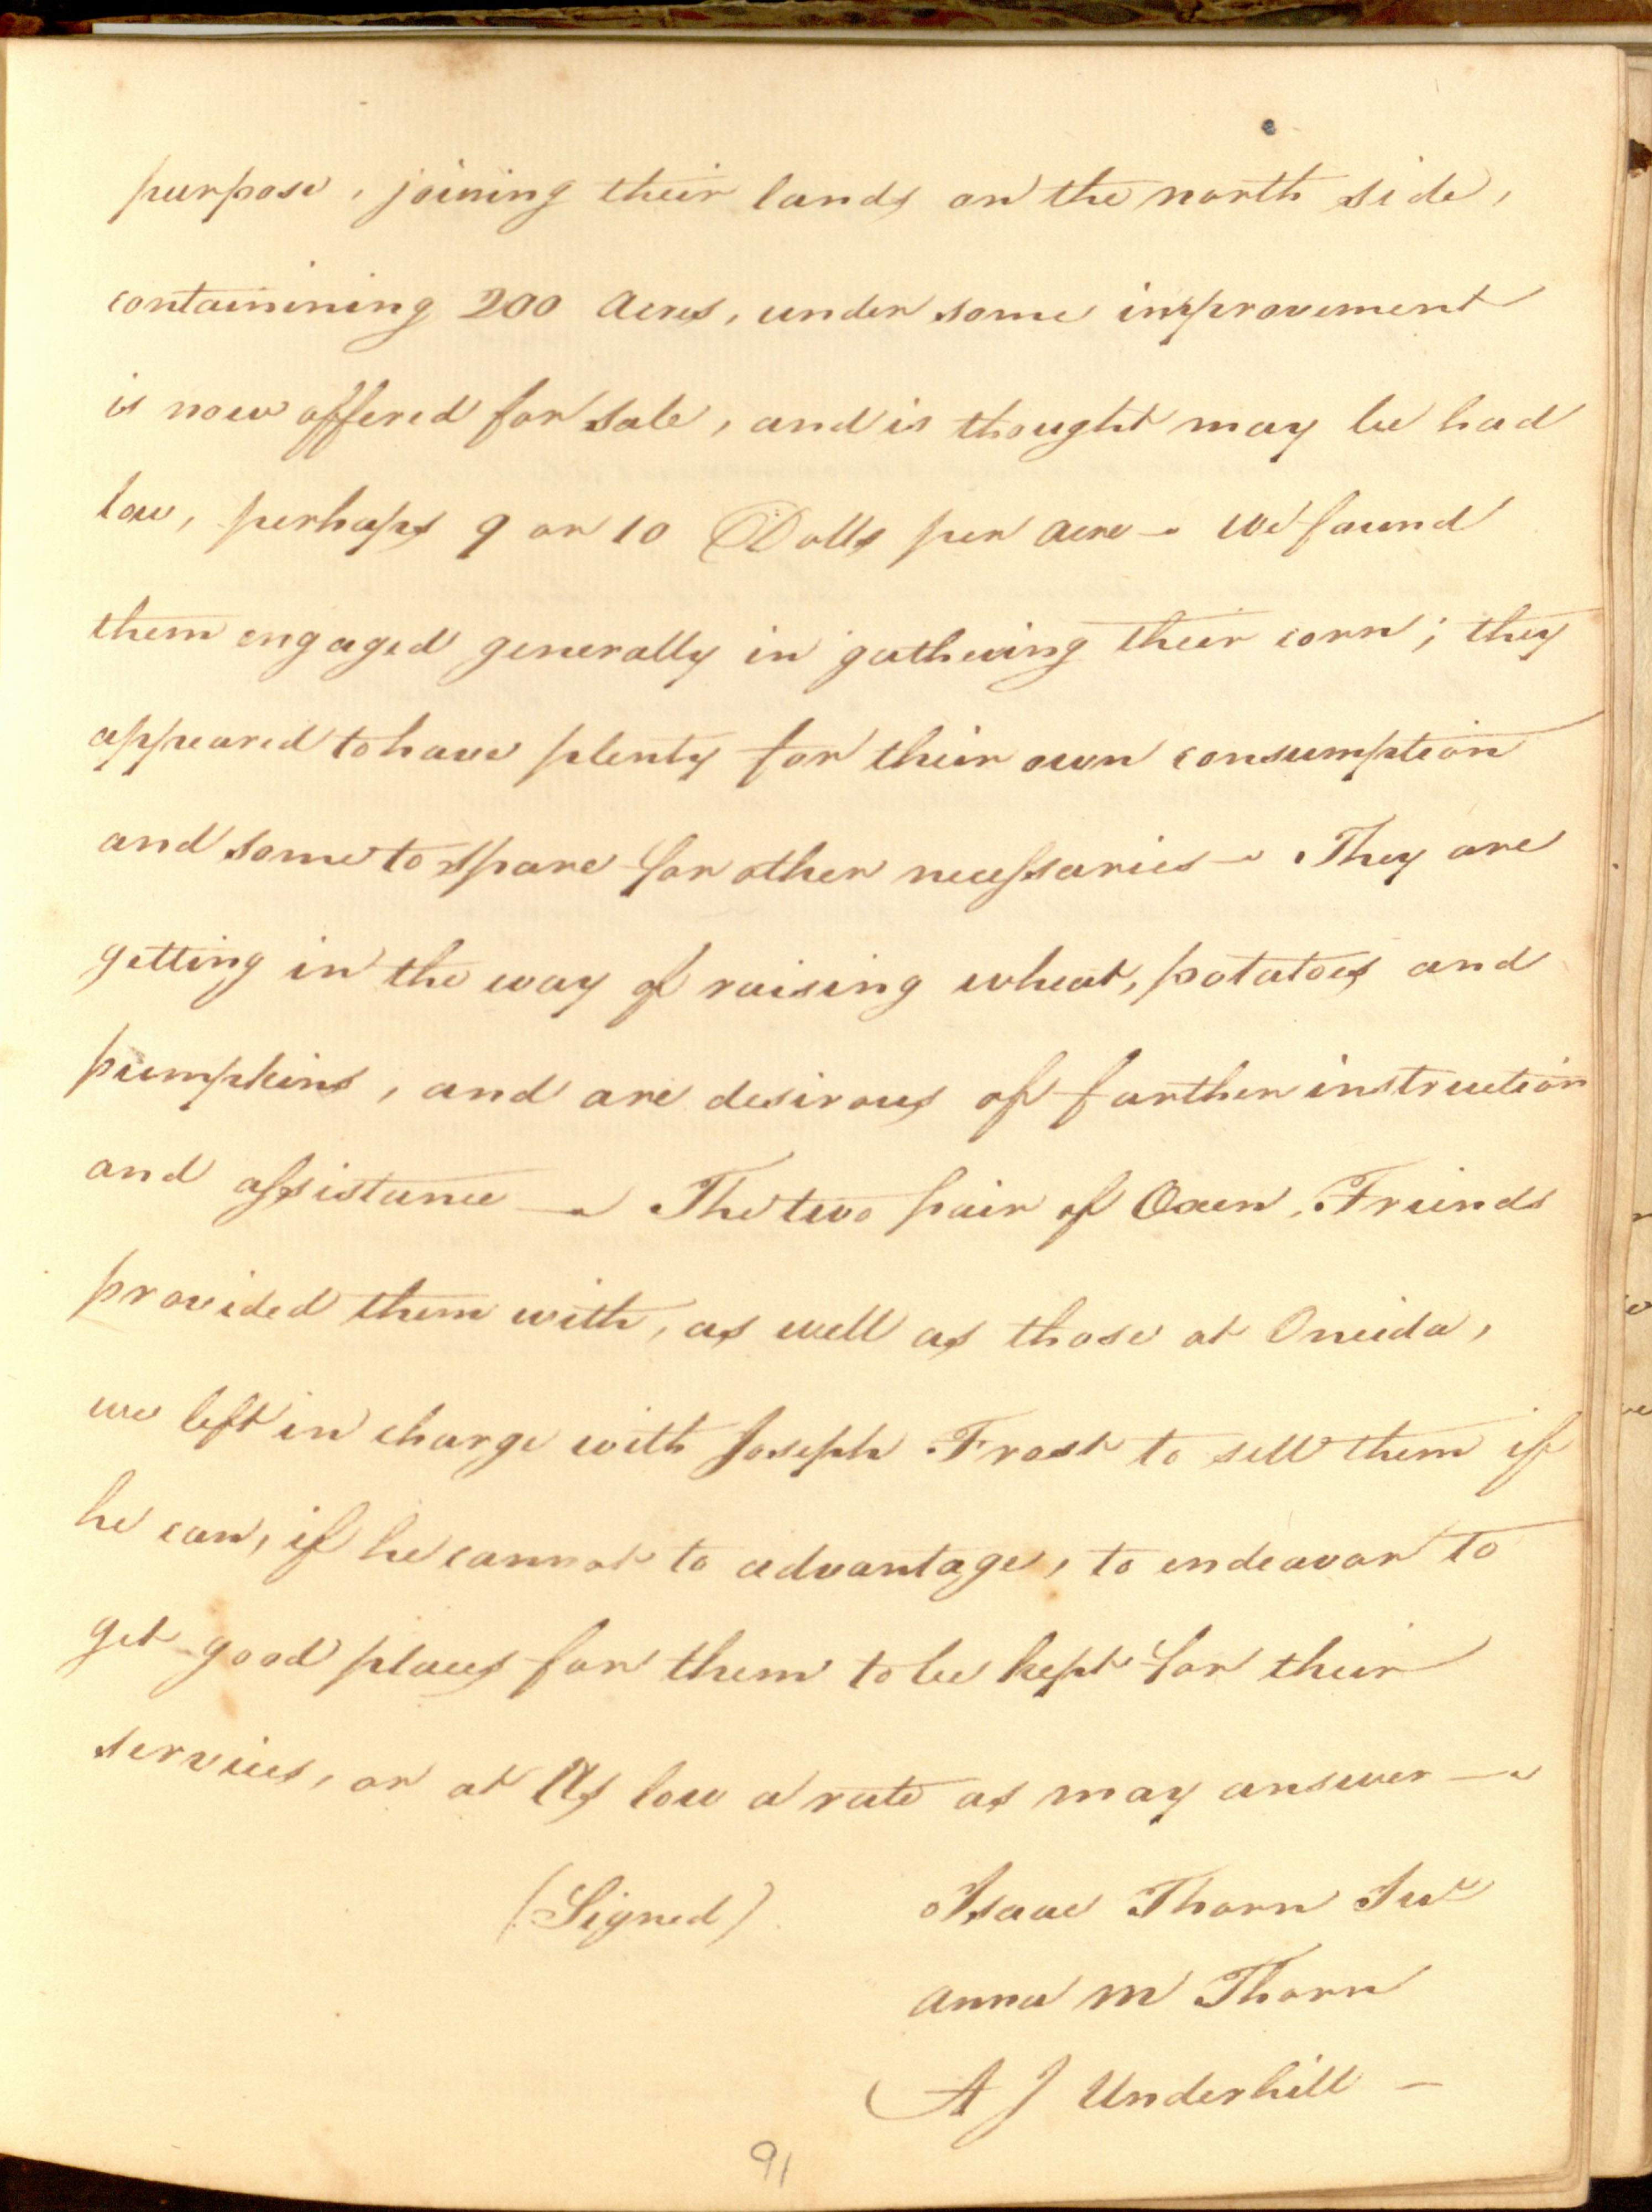 purpose, joining their lands on the north side,
containining 200 Acres, under some improvement
is now offered for sale, and is thought may be had
low, perhaps 9 or 10 Dolls per Acre – we found
them engaged generally in gathering their corn; they
appeared to have plenty for their own consumption
and some to spare for other necessaries – They are
getting in the way of raising wheat, potatoes and
pumpkins, and are desirous of farther instruction
and assistance – The two pair of Oxen, Friends
provided them with, as well as those at Oneida,
we left in charge with Joseph Frost to sell them if
he can, if he cannot to advantage, to endeavor to
get good places for them to be kept for their
services, or at As low a rate as may answer –
(Signed) Isaac Thorn Junr
Anna M Thorn
A J Underhill –
91